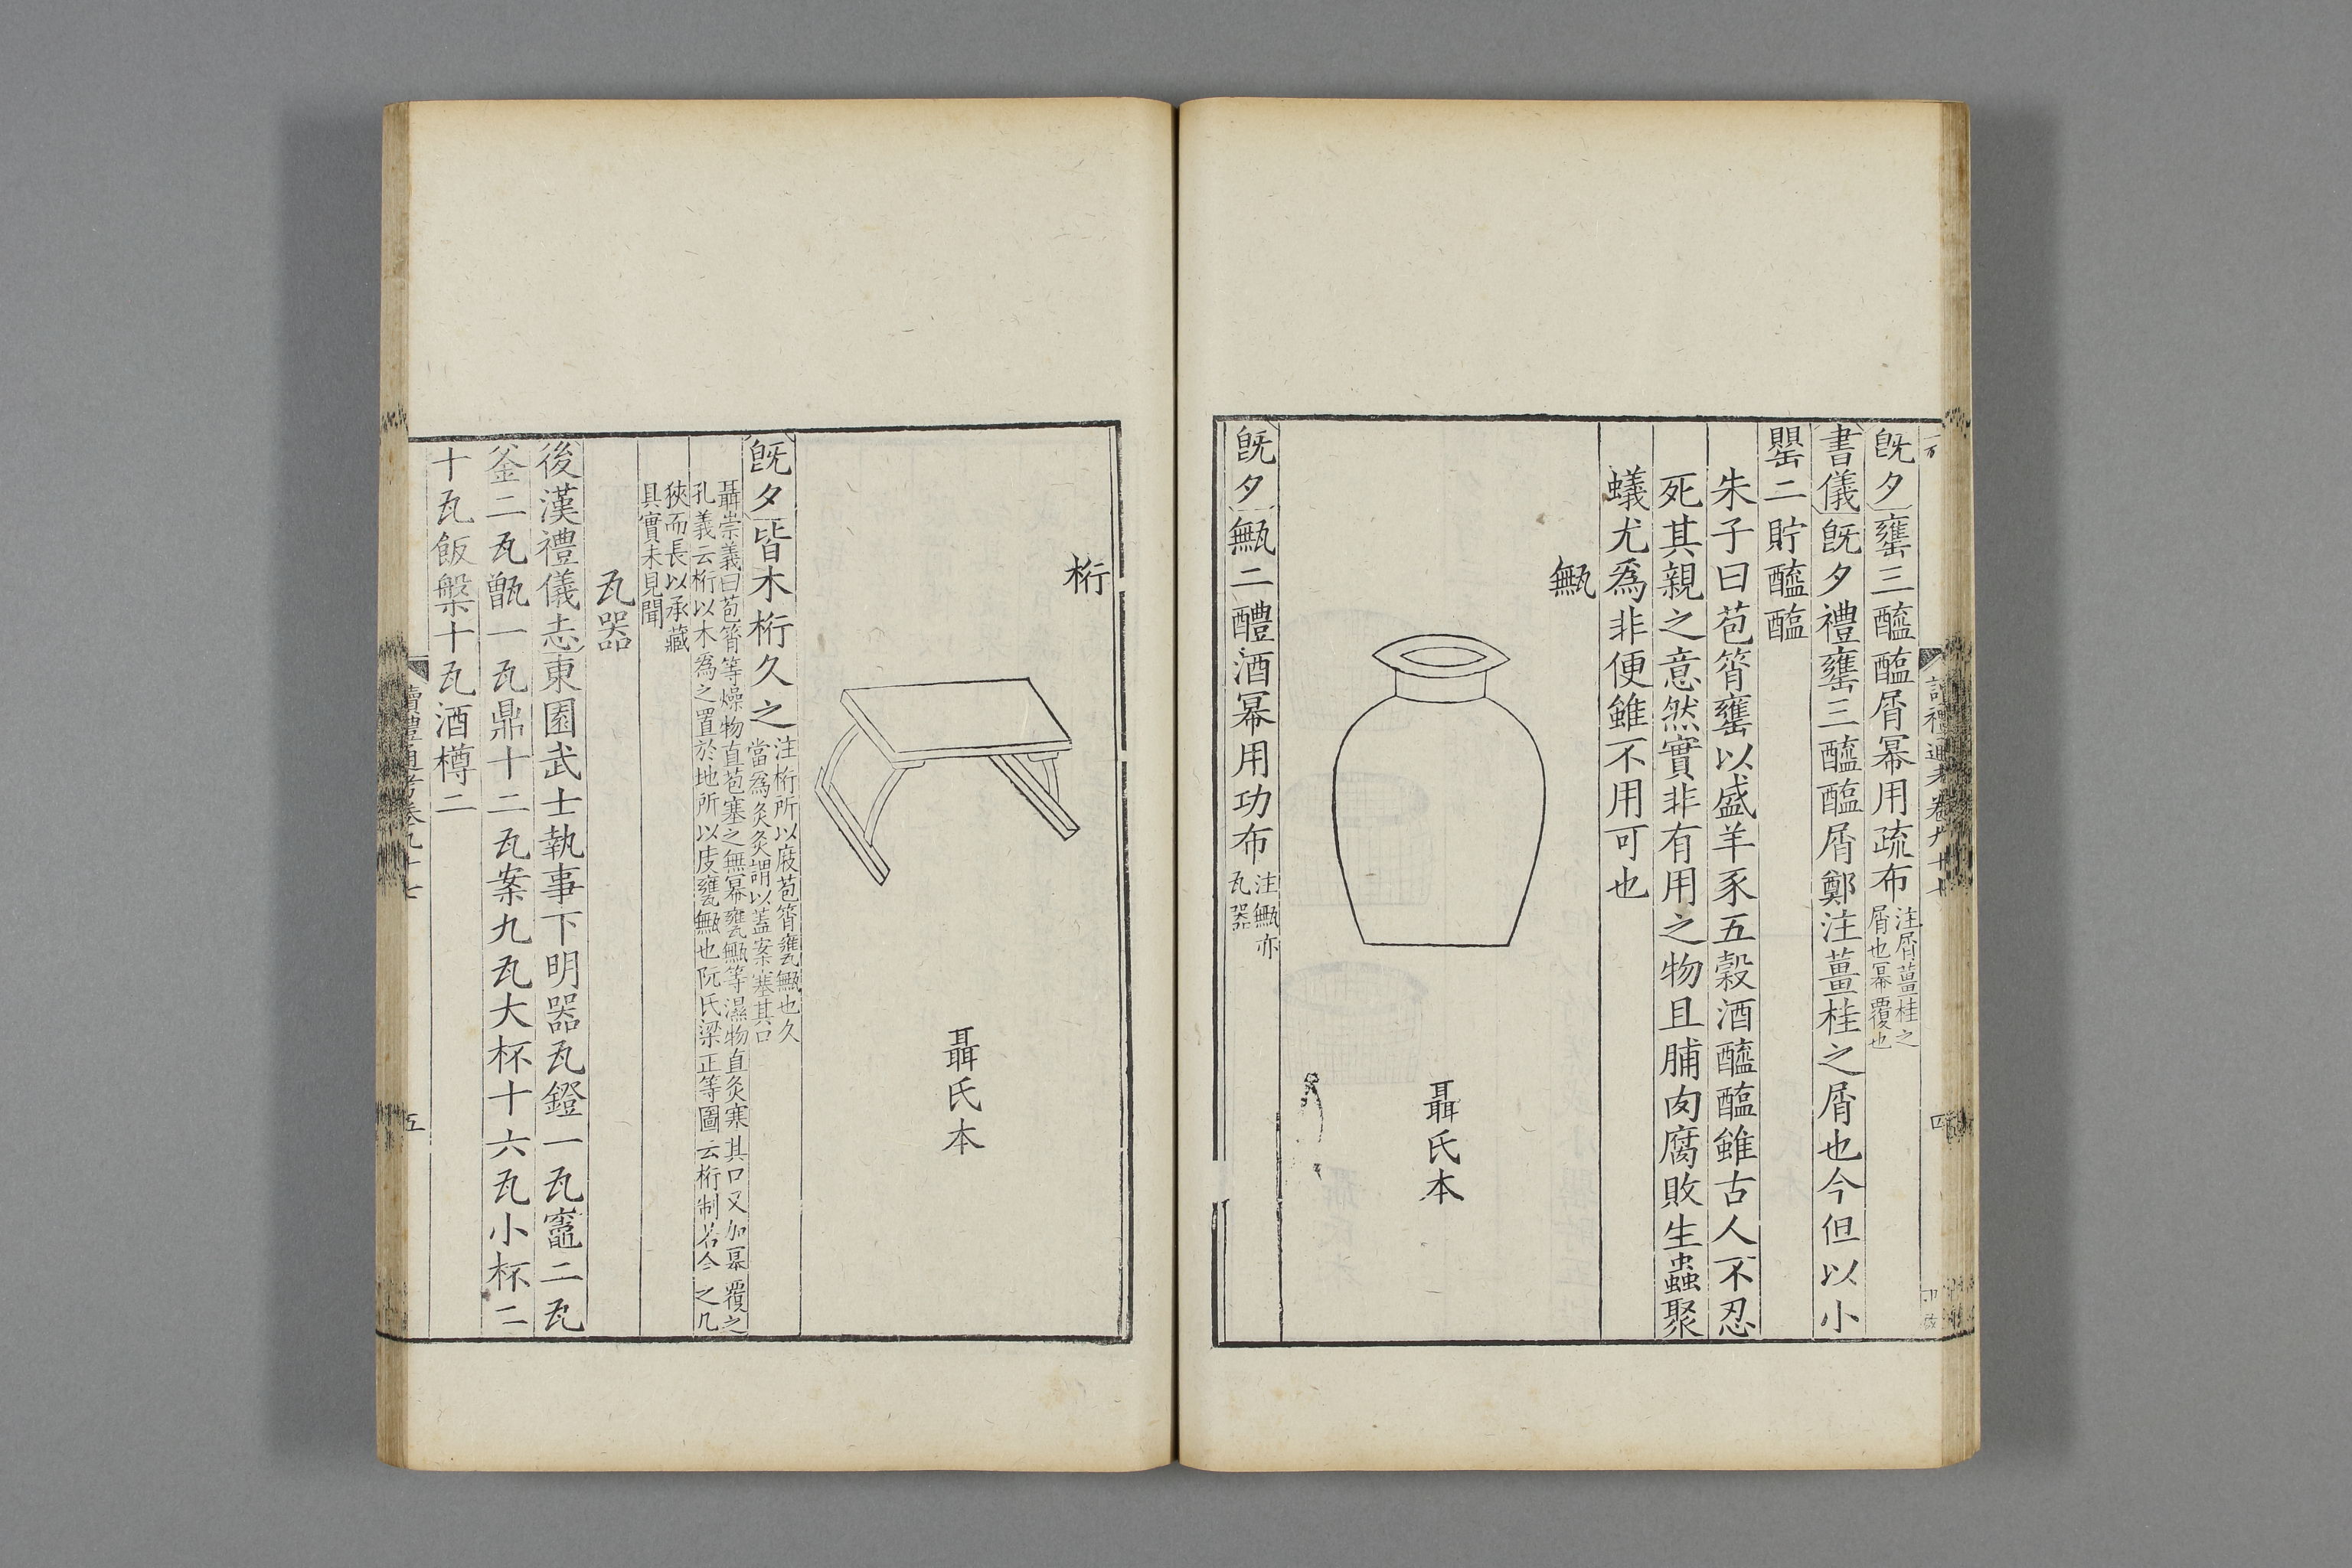 旣夕罋三醯醢屑冪用疏布
注屑薑桂之
屑也冪覆也
書儀旣夕禮罋三醯醢屑鄭注薑桂之屑也今但以小
甖二貯醯醢
朱子曰苞筲罋以盛羊豕五穀酒醯醢雖古人不忍
死其親之意然實非有用之物且脯肉腐敗生蟲聚
蟻尤爲非便雖不用可也
甒
聶氏本
旣夕甒二醴酒冪用功布
注甒亦
瓦器
桁
聶氏本
旣夕皆木桁久之
注桁所以庪苞筲甕甒也久
當爲灸灸謂以蓋案塞其口
聶崇義曰苞筲等燥物直苞塞之無冪甕甒等濕物直灸塞其口又加冪覆之
孔義云桁以木爲之置於地所以庋甕甒也阮氏梁正等圖云桁制若今之几
狹而長以承藏
具實未見聞
瓦器
後漢禮儀志東園武士執事下明器瓦鐙一瓦竈二瓦
釜二瓦甑一瓦鼎十二瓦案九瓦大杯十六瓦小杯二
十瓦飯槃十瓦酒樽二
讀禮通考卷九十七
五